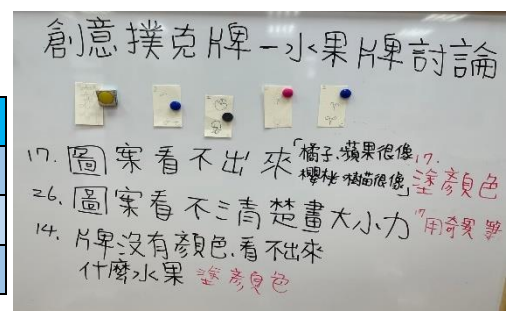 創意撲克牌-水果牌討論
17. 圖案看不出來「橘子、蘋果很像,櫻桃、樹苗很像」17. 塗顏色
26. 圖案看不清楚畫大小力 17用奇異筆
14. 片牌沒有顏色、看不出來
什麼水果 塗顏色